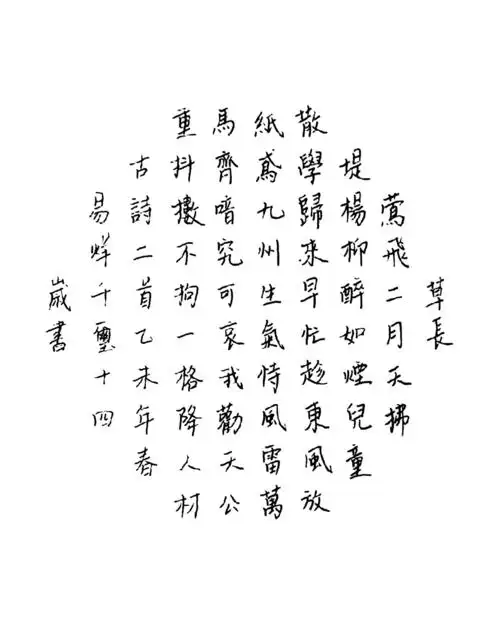 草長
鶯飛二月天拂
堤楊柳醉如煙兒童
散學歸來早忙趁東風放
紙鳶九州生氣恃風雷萬
馬齊喑究可哀我勸天公
重抖擻不拘一格降人材
古詩二首乙未年春
易烊千璽十四
歲書